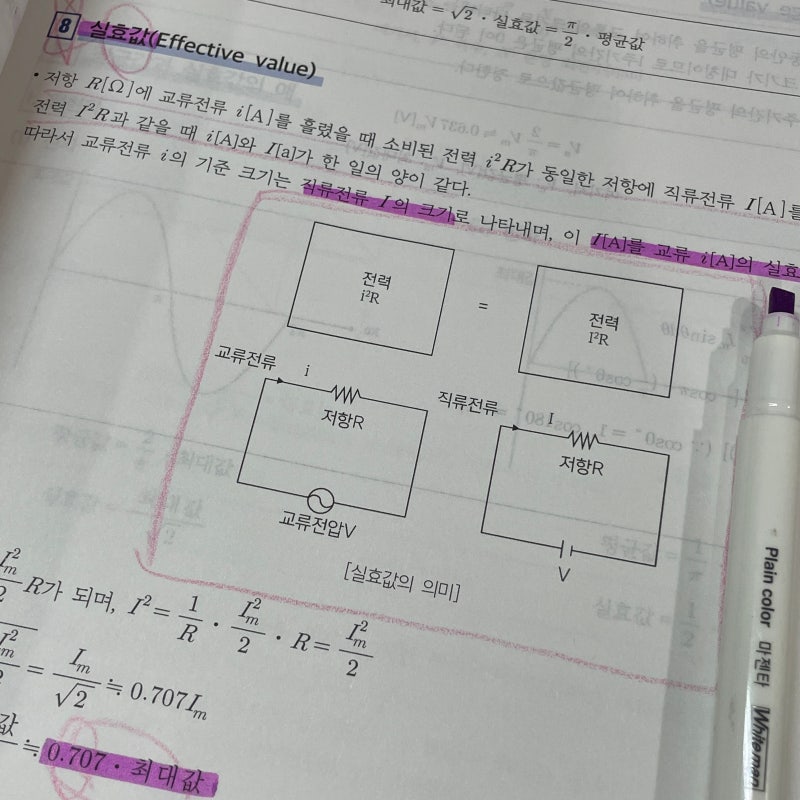 최대값 = √2 · 실효값 = π/2 · 평균값
8 실효값(Effective value)
• 저항 R[Ω]에 교류전류 i[A]를 흘렸을 때 소비된 전력 i²R가 동일한 저항에 직류전류 I[A]를
전력 I²R과 같을 때 i[A]와 I[a]가 한 일의 양이 같다.
따라서 교류전류 i의 기준 크기는 직류전류 I의 크기로 나타내며, 이 I[A]를 교류 i[A]의 실효
전력
i²R
=
전력
I²R
교류전류 i
저항R
교류전압V
직류전류 I
저항R
V
[실효값의 의미]
I_m²/2 R가 되며, I² = 1/R · I_m²/2 · R = I_m²/2
I_m²/2 = I_m/√2 ≒ 0.707I_m
값 ≒ 0.707 · 최대값
Plain color 마젠타 Whiteman